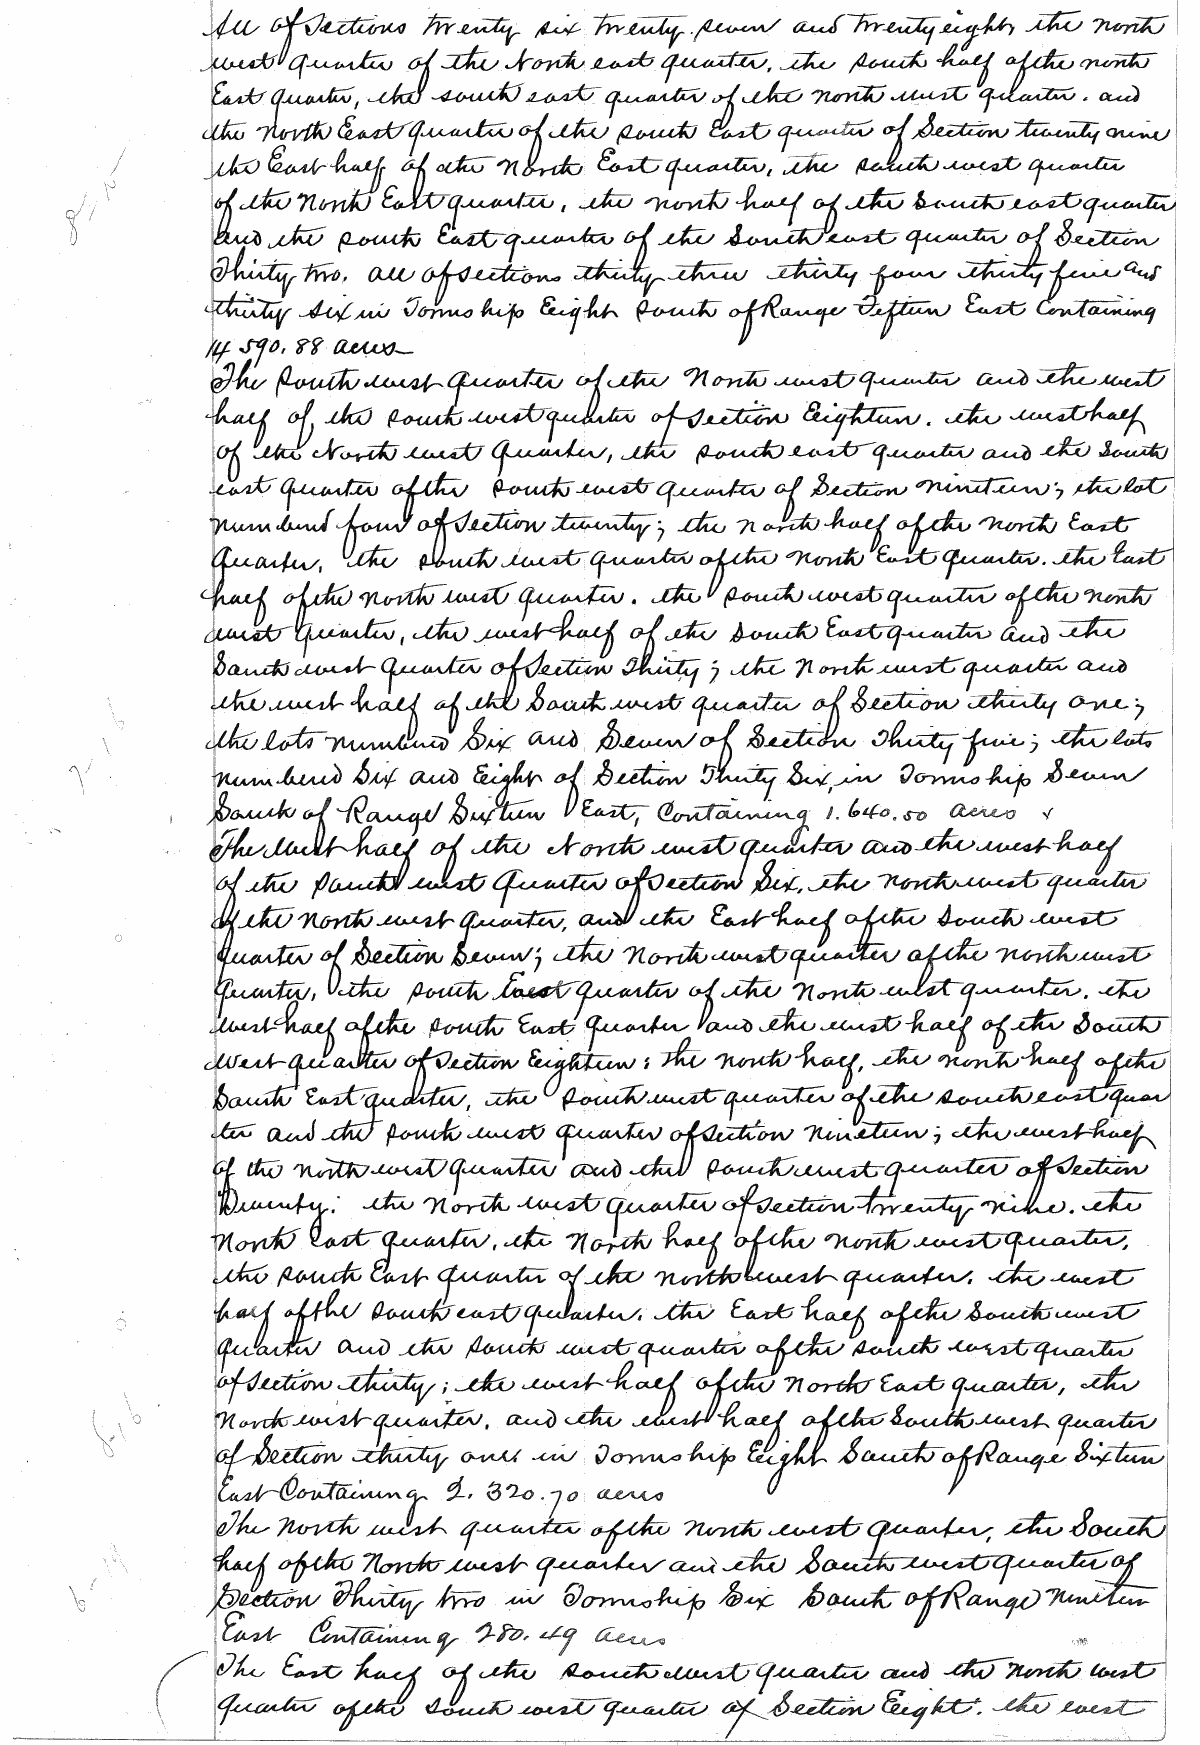 All of Sections twenty six twenty seven and twenty eight, the north
west quarter of the North east quarter, the south half of the north
East quarter, the south east quarter of the north west quarter. and
the north East quarter of the south East quarter of Section twenty nine
the East half of the North East quarter, the south west quarter
of the North East quarter, the north half of the South east quarter
and the south East quarter of the South east quarter of Section
Thirty two. all of sections thirty three thirty four thirty five and
thirty six in Township Eight South of Range Fifteen East Containing
14 590.88 acres
The South west quarter of the North west quarter and the west
half of, the south west quarter of Section Eighteen. the west half
of the North west Quarter, the south east quarter and the South
east quarter of the south west quarter of Section nineteen; the lot
numbered four of Section twenty; the north half of the north East
Quarter, the south west quarter of the north East quarter. the East
half of the north west quarter. the south west quarter of the north
west quarter, the west half of the South East quarter and the
South west quarter of Section Thirty; the North west quarter and
the west half of the South west quarter of Section thirty one;
the lots numbered Six and Seven of Section Thirty five; the lots
numbered Six and Eight of Section Thirty Six, in Township Seven
South of Range Sixteen East, Containing 1.640.50 acres
The West half of the North west quarter and the west half
of the South west Quarter of Section Six, the North west quarter
of the North west quarter, and the East half of the South west
quarter of Section Seven; the North west quarter of the north west
quarter, the south East quarter of the North west quarter. the
west half of the south East quarter and the west half of the South
West quarter of Section Eighteen: the north half, the north half of the
South East quarter, the south west quarter of the south east quar
ter and the south west quarter of Section nineteen; the west half
of the north west quarter and the south west quarter of Section
Twenty: the North west quarter of Section twenty nine. the
North East quarter, the North half of the north west quarter,
the south East quarter of the north west quarter. the west
half of the south east quarter. the East half of the South west
quarter and the south west quarter of the south west quarter
of Section thirty; the west half of the North East quarter, the
North west quarter, and the west half of the South west quarter
of Section thirty one in Township Eight South of Range Sixteen
East Containing 2.320.70 acres
The North west quarter of the north west quarter, the South
half of the North west quarter and the South west quarter of
Section Thirty two in Township Six South of Range Nineteen
East Containing 280.49 acres
The East half of the south west quarter and the North west
quarter of the South west quarter of Section Eight. the west